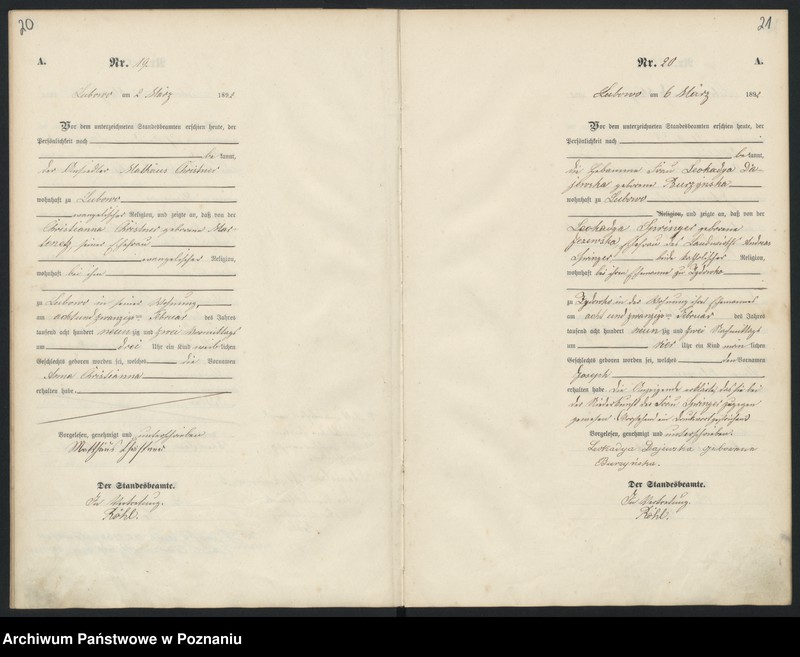 20
A.
Nr. 19.
Lubowo am 2. März 1892
Vor dem unterzeichneten Standesbeamten erschien heute, der
Persönlichkeit nach
be kannt,
der Ansiedler Mathäus Christner
wohnhaft zu Lubowo
evangelischer Religion, und zeigte an, daß von der
Christianna Christner geborene
seiner Ehefrau
evangelischer Religion,
wohnhaft bei ihm
zu Lubowo in seiner Wohnung,
am acht und zwanzigsten Februar des Jahres
tausend acht hundert neun zig und zwei Vormittags
um drei Uhr ein Kind weib lichen
Geschlechts geboren worden sei, welches die Vornamen
Anna Christianna
erhalten habe.
Vorgelesen, genehmigt und unterschrieben
Der Standesbeamte.
In Vertretung.
Röhl.
21
Nr. 20
A.
Lubowo am 6 März 1892
Vor dem unterzeichneten Standesbeamten erschien heute, der
Persönlichkeit nach
be kannt,
die Hebamme Frau Leokadya
geborene Burzyńska
wohnhaft zu Lubowo
Religion, und zeigte an, daß von der
Leokadya Springer geborene
Ehefrau des Landwirths Andreas
Springer beide katholischer Religion,
wohnhaft bei ihrem Ehemanne zu
zu in der Wohnung ihres Ehemannes
am acht und zwanzigsten Februar des Jahres
tausend acht hundert neun zig und zwei Nachmittags
um vier Uhr ein Kind männ lichen
Geschlechts geboren worden sei, welches den Vornamen
Joseph
erhalten habe. Die Anzeigende erklärte, daß sie bei
der Niederkunft der Frau Springer zugegen
gewesen. Vorstehend ein Druckwort gestrichen
Vorgelesen, genehmigt und unterschrieben.
Leokadya Dajewska geborenna
Burzyńska.
Der Standesbeamte.
In Vertretung.
Röhl.
Archiwum Państwowe w Poznaniu